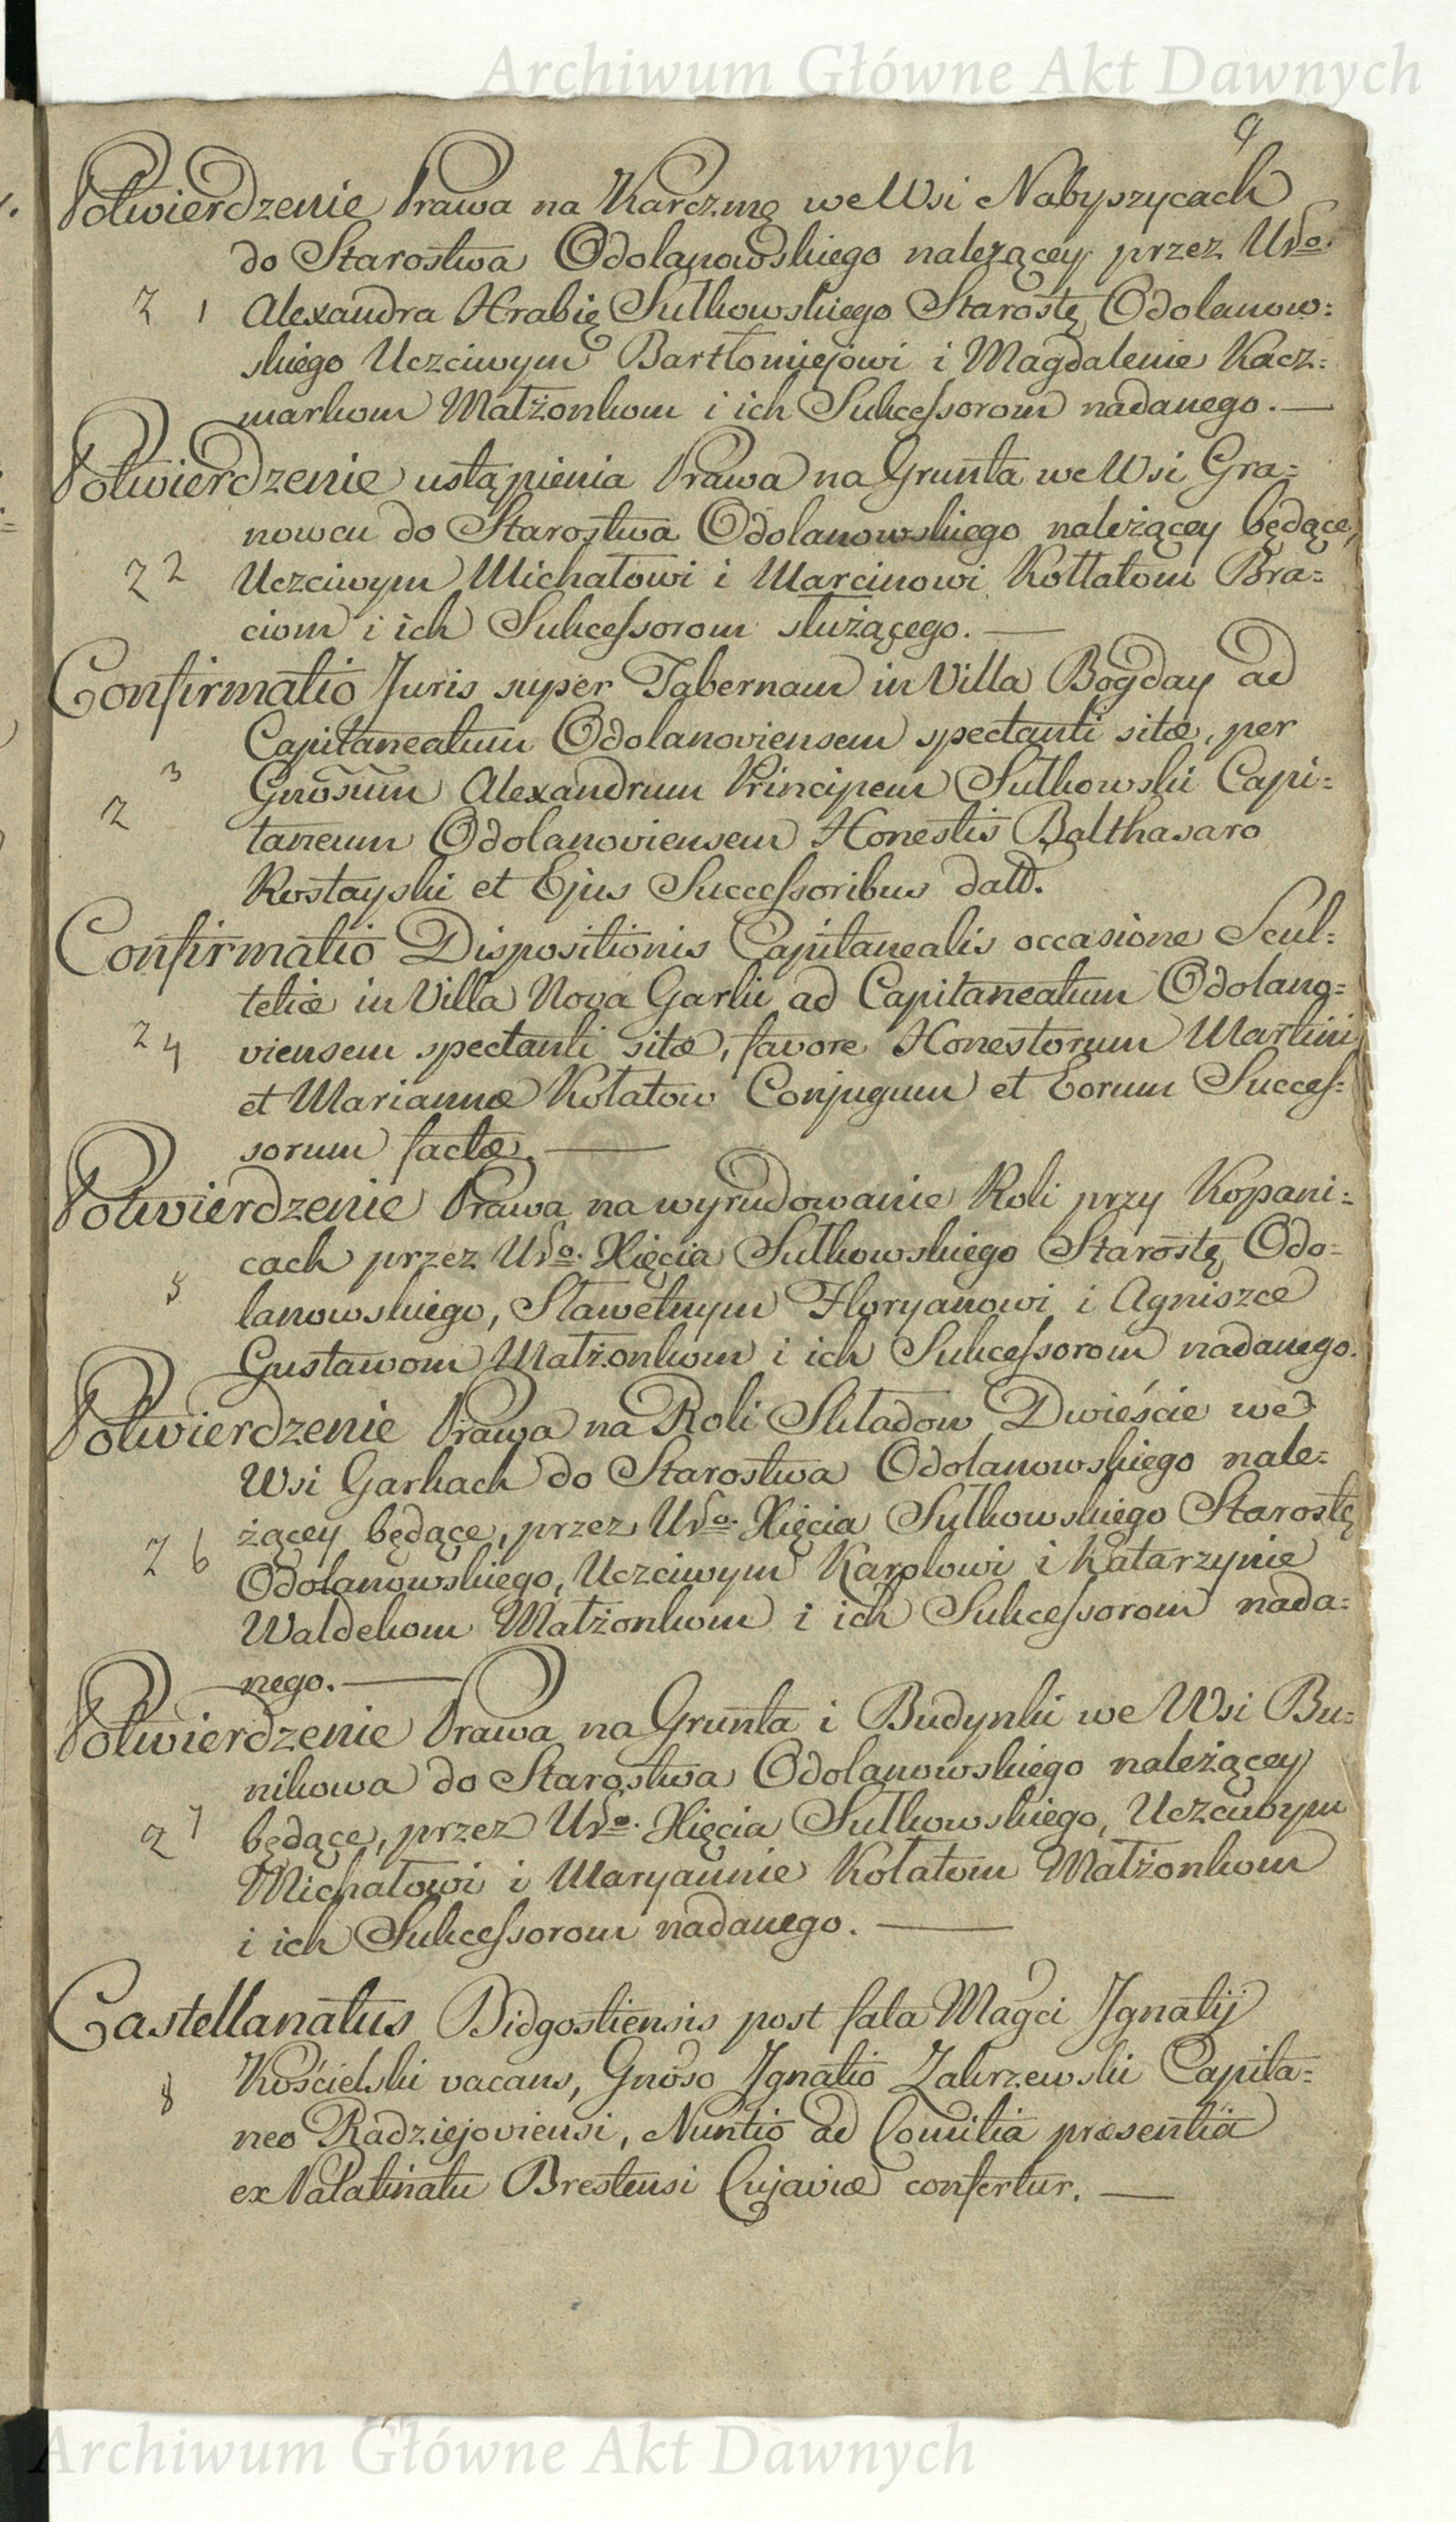 Archiwum Główne Akt Dawnych
9
Potwierdzenie Prawa na Karczmę we Wsi Nabyszycach
do Starostwa Odolanowskiego należącey przez Urdo.
2 1 Alexandra Hrabię Sułkowskiego Starostę Odolanow=
skiego Uczciwym Bartłomiejowi i Magdalenie Kacz=
markom Małżonkom i ich Sukcessorom nadanego. —
Potwierdzenie ustąpienia Prawa na Grunta we Wsi Gra=
nowcu do Starostwa Odolanowskiego należącey będące,
2 2 Uczciwym Michałowi i Marcinowi Kołłatom Bra=
ciom i ich Sukcessorom służącego. —
Confirmatio Juris super Tabernam in Villa Bogday ad
Capitaneatum Odolanoviensem spectanti sitæ, per
2 3 Gnosum Alexandrum Principem Sułkowski Capi=
taneum Odolanoviensem Honestis Balthasaro
Rostayski et Ejus Successoribus datt.
Confirmatio Dispositionis Capitanealis occasione Scul=
tetiæ in Villa Nova Garki ad Capitaneatum Odolano=
2 4 viensem spectanti sitæ, favore Honestorum Martini
et Mariannæ Kołatow Conjugum et Eorum Succes=
sorum factæ. —
Potwierdzenie Prawa na wyrudowanie Roli przy Kopani=
cach przez Urdo. Xięcia Sułkowskiego Starostę Odo=
5 lanowskiego, Sławetnym Floryanowi i Agniszce
Gustawom Małżonkom i ich Sukcessorom nadanego.
Potwierdzenie Prawa na Roli Składow Dwieście we
Wsi Garkach do Starostwa Odolanowskiego nale=
żącey będące, przez Urdo. Xięcia Sułkowskiego Starostę
2 6 Odolanowskiego, Uczciwym Karolowi i Katarzynie
Waldekom Małżonkom i ich Sukcessorom nada=
nego. —
Potwierdzenie Prawa na Grunta i Budynki we Wsi Bu=
nikowa do Starostwa Odolanowskiego należącey
2 7 będące, przez Urdo. Xięcia Sułkowskiego, Uczciwym
Michałowi i Maryannie Kołatom Małżonkom
i ich Sukcessorom nadanego. —
Castellanatus Bidgostiensis post fata Magci Jgnatij
Kościelski vacans, Gnoso Jgnatio Zakrzewski Capita=
8 neo Radziejoviensi, Nuntio ad Comitia præsentia
ex Palatinatu Brestensi Cujaviæ confertur. —
Archiwum Główne Akt Dawnych